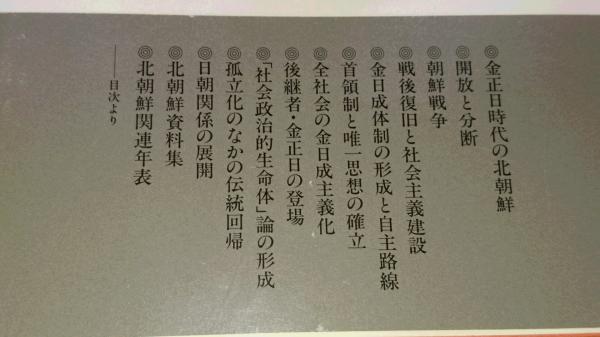 ◎金正日時代の北朝鮮
◎開放と分断
◎朝鮮戦争
◎戦後復旧と社会主義建設
◎金日成体制の形成と自主路線
◎首領制と唯一思想の確立
◎全社会の金日成主義化
◎後継者・金正日の登場
◎「社会政治的生命体」論の形成
◎孤立化のなかの伝統回帰
◎日朝関係の展開
◎北朝鮮資料集
◎北朝鮮関連年表
——目次より